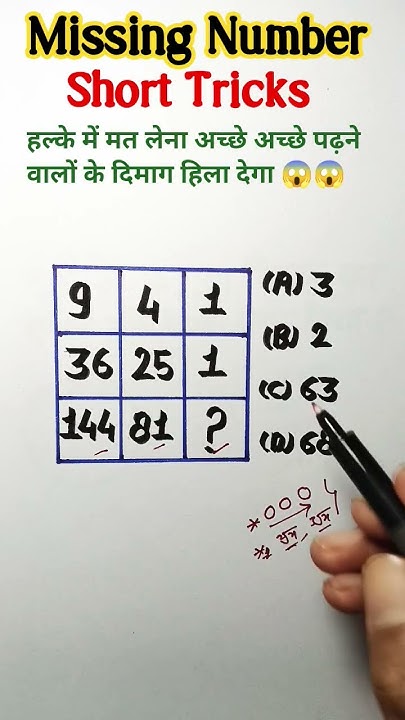 Missing Number
Short Tricks
हल्के में मत लेना अच्छे अच्छे पढ़ने
वालों के दिमाग हिला देगा 😱😱
9 4 1
36 25 1
144 81 ?
(A) 3
(B) 2
(C) 63
(D) 68